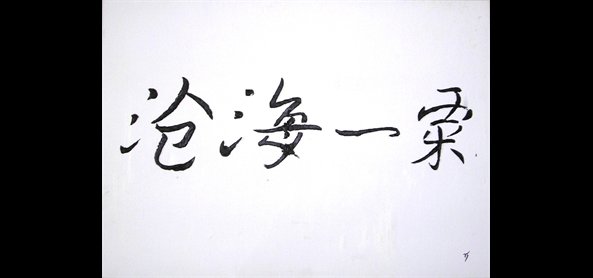 沧海一粟